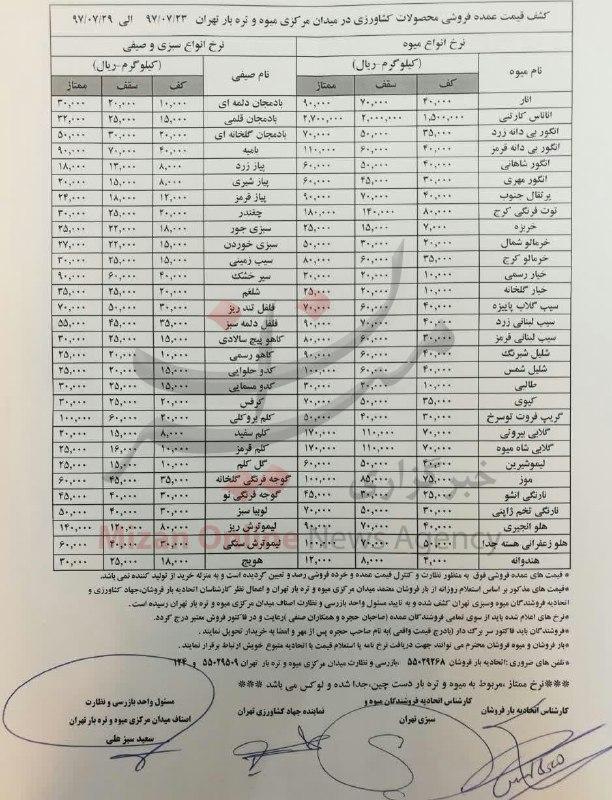 کشف قیمت عمده فروشی محصولات کشاورزی در میدان مرکزی میوه و تره بار تهران ۹۷/۰۷/۲۳ الی ۹۷/۰۷/۲۹
نرخ انواع میوه نرخ انواع سبزی و صیفی
نام میوه (کیلوگرم-ریال) نام صیفی (کیلوگرم-ریال)
کف سقف ممتاز کف سقف ممتاز
انار ۴۰,۰۰۰ ۷۰,۰۰۰ ۹۰,۰۰۰ بادمجان دلمه ای ۱۰,۰۰۰ ۲۰,۰۰۰ ۳۰,۰۰۰
اناناس کارتنی ۱,۵۰۰,۰۰۰ ۲,۰۰۰,۰۰۰ ۲,۷۰۰,۰۰۰ بادمجان قلمی ۱۵,۰۰۰ ۲۵,۰۰۰ ۳۲,۰۰۰
انگور بی دانه زرد ۳۵,۰۰۰ ۵۰,۰۰۰ ۷۰,۰۰۰ بادمجان گلخانه ای ۲۰,۰۰۰ ۳۰,۰۰۰ ۵۰,۰۰۰
انگور بی دانه قرمز ۴۰,۰۰۰ ۶۰,۰۰۰ ۱۱۰,۰۰۰ بامیه ۴۰,۰۰۰ ۷۰,۰۰۰ ۹۰,۰۰۰
انگور شاهانی ۴۰,۰۰۰ ۵۰,۰۰۰ ۶۰,۰۰۰ پیاز زرد ۸,۰۰۰ ۱۳,۰۰۰ ۱۸,۰۰۰
انگور مهری ۳۰,۰۰۰ ۴۵,۰۰۰ ۶۰,۰۰۰ پیاز شیری ۸,۰۰۰ ۱۵,۰۰۰ ۲۰,۰۰۰
پرتقال جنوب ۴۰,۰۰۰ ۷۰,۰۰۰ ۹۰,۰۰۰ پیاز قرمز ۱۲,۰۰۰ ۱۸,۰۰۰ ۲۴,۰۰۰
توت فرنگی کرج ۸۰,۰۰۰ ۱۴۰,۰۰۰ ۱۸۰,۰۰۰ چغندر ۲۰,۰۰۰ ۲۵,۰۰۰ ۳۰,۰۰۰
خربزه ۷,۰۰۰ ۱۵,۰۰۰ ۲۵,۰۰۰ سبزی جور ۱۸,۰۰۰ ۲۲,۰۰۰ ۲۵,۰۰۰
خرمالو شمال ۲۰,۰۰۰ ۳۰,۰۰۰ ۵۰,۰۰۰ سبزی خوردن ۱۵,۰۰۰ ۲۲,۰۰۰ ۲۷,۰۰۰
خرمالو کرج ۳۵,۰۰۰ ۶۰,۰۰۰ ۸۰,۰۰۰ سیب زمینی ۱۵,۰۰۰ ۲۵,۰۰۰ ۳۰,۰۰۰
خیار رسمی ۱۰,۰۰۰ ۲۰,۰۰۰ ۳۰,۰۰۰ سیر خشک ۴۰,۰۰۰ ۶۰,۰۰۰ ۹۰,۰۰۰
خیار گلخانه ۱۰,۰۰۰ ۲۰,۰۰۰ ۲۵,۰۰۰ شلغم ۲۰,۰۰۰ ۲۵,۰۰۰ ۳۵,۰۰۰
سیب گلاب پاییزه ۴۰,۰۰۰ ۶۰,۰۰۰ ۷۰,۰۰۰ فلفل تند ریز ۳۰,۰۰۰ ۵۰,۰۰۰ ۷۰,۰۰۰
سیب لبنانی زرد ۴۰,۰۰۰ ۷۰,۰۰۰ ۹۰,۰۰۰ فلفل دلمه سبز ۳۵,۰۰۰ ۴۵,۰۰۰ ۵۵,۰۰۰
سیب لبنانی قرمز ۳۰,۰۰۰ ۶۰,۰۰۰ ۸۰,۰۰۰ کاهو پیچ سالادی ۱۵,۰۰۰ ۲۵,۰۰۰ ۳۰,۰۰۰
شلیل شبرنگ ۴۰,۰۰۰ ۶۰,۰۰۰ ۹۰,۰۰۰ کاهو رسمی ۱۰,۰۰۰ ۲۰,۰۰۰ ۲۵,۰۰۰
شلیل شمس ۴۰,۰۰۰ ۶۰,۰۰۰ ۱۰۰,۰۰۰ کدو حلوایی ۱۵,۰۰۰ ۲۰,۰۰۰ ۲۵,۰۰۰
طالبی ۱۰,۰۰۰ ۲۰,۰۰۰ ۳۰,۰۰۰ کدو مسمایی ۱۵,۰۰۰ ۲۵,۰۰۰ ۳۰,۰۰۰
کیوی ۳۵,۰۰۰ ۵۰,۰۰۰ ۷۰,۰۰۰ کرفس ۲۰,۰۰۰ ۲۵,۰۰۰ ۳۰,۰۰۰
گریپ فروت توسرخ ۳۰,۰۰۰ ۴۰,۰۰۰ ۵۰,۰۰۰ کلم بروکلی ۲۰,۰۰۰ ۶۰,۰۰۰ ۱۰۰,۰۰۰
گلابی بیروتی ۷۰,۰۰۰ ۱۱۰,۰۰۰ ۱۷۰,۰۰۰ کلم سفید ۸,۰۰۰ ۱۵,۰۰۰ ۲۰,۰۰۰
گلابی شاه میوه ۷۰,۰۰۰ ۱۱۰,۰۰۰ ۱۷۰,۰۰۰ کلم قرمز ۱۰,۰۰۰ ۱۶,۰۰۰ ۲۵,۰۰۰
لیموشیرین ۳۰,۰۰۰ ۵۰,۰۰۰ ۶۰,۰۰۰ گل کلم ۱۰,۰۰۰ ۱۵,۰۰۰ ۲۵,۰۰۰
موز ۷۵,۰۰۰ ۸۵,۰۰۰ ۱۰۰,۰۰۰ گوجه فرنگی گلخانه ۳۵,۰۰۰ ۴۵,۰۰۰ ۶۰,۰۰۰
نارنگی انشو ۲۵,۰۰۰ ۳۰,۰۰۰ ۴۵,۰۰۰ گوجه فرنگی نو ۳۰,۰۰۰ ۴۰,۰۰۰ ۴۵,۰۰۰
نارنگی تخم ژاپنی ۳۰,۰۰۰ ۷۰,۰۰۰ ۹۰,۰۰۰ لوبیا سبز ۳۰,۰۰۰ ۴۰,۰۰۰ ۵۰,۰۰۰
هلو انجیری ۴۰,۰۰۰ ۷۰,۰۰۰ ۹۰,۰۰۰ لیموترش ریز ۸۰,۰۰۰ ۱۲۰,۰۰۰ ۱۴۰,۰۰۰
هلو زعفرانی هسته جدا ۵۰,۰۰۰ ۷۰,۰۰۰ ۱۰۰,۰۰۰ لیموترش سنگی ۳۰,۰۰۰ ۴۰,۰۰۰ ۶۰,۰۰۰
هندوانه ۲,۰۰۰ ۸,۰۰۰ ۱۲,۰۰۰ هویج ۱۸,۰۰۰ ۲۵,۰۰۰ ۳۰,۰۰۰
*قیمت های عمده فروشی فوق به منظور نظارت و کنترل قیمت عمده و خرده فروشی رصد و تعیین گردیده است و به منزله خرید از تولید کننده نمی باشد.
*قیمت های مذکور بر اساس استعلام روزانه از بار فروشان معتمد میدان مرکزی میوه و تره بار تهران و اعمال نظر کارشناسان اتحادیه بار فروشان،جهاد کشاورزی و
اتحادیه فروشندگان میوه وسبزی تهران کشف شده و به تایید مسئول واحد بازرسی و نظارت اصناف میدان مرکزی میوه و تره بار تهران رسیده است.
*نرخ های اعلام شده باید از سوی تمامی فروشندگان عمده (صاحبان حجره و همکاران صنفی )رعایت و در فاکتور فروش معتبر درج گردد.
*فروشندگان باید فاکتور سر برگ دار (بادرج قیمت واقعی )به نام صاحب حجره پس از مهر و امضا به خریدار تحویل نمایند .
*بار فروشان و میوه فروشان محترم می توانند جهت دریافت نرخ نامه یا استعلام قیمت با اتحادیه متبوع خویش ارتباط برقرار نمایند.
*تلفن های ضروری :اتحادیه بار فروشان ۵۵۰۲۹۲۶۸ ،بازرسی و نظارت میدان مرکزی میوه و تره بار تهران ۵۵۰۲۹۵۰۹ و ۱۲۴
***نرخ ممتاز ،مربوط به میوه و تره بار دست چین،جدا شده و لوکس می باشد ***
کارشناس اتحادیه بار فروشان کارشناس اتحادیه فروشندگان میوه و سبزی تهران نماینده جهاد کشاورزی تهران مسئول واحد بازرسی و نظارت
اصناف میدان مرکزی میوه و تره بار تهران
سعید سبز علی
خبرگزاری میزان
Mizan Online News Agency